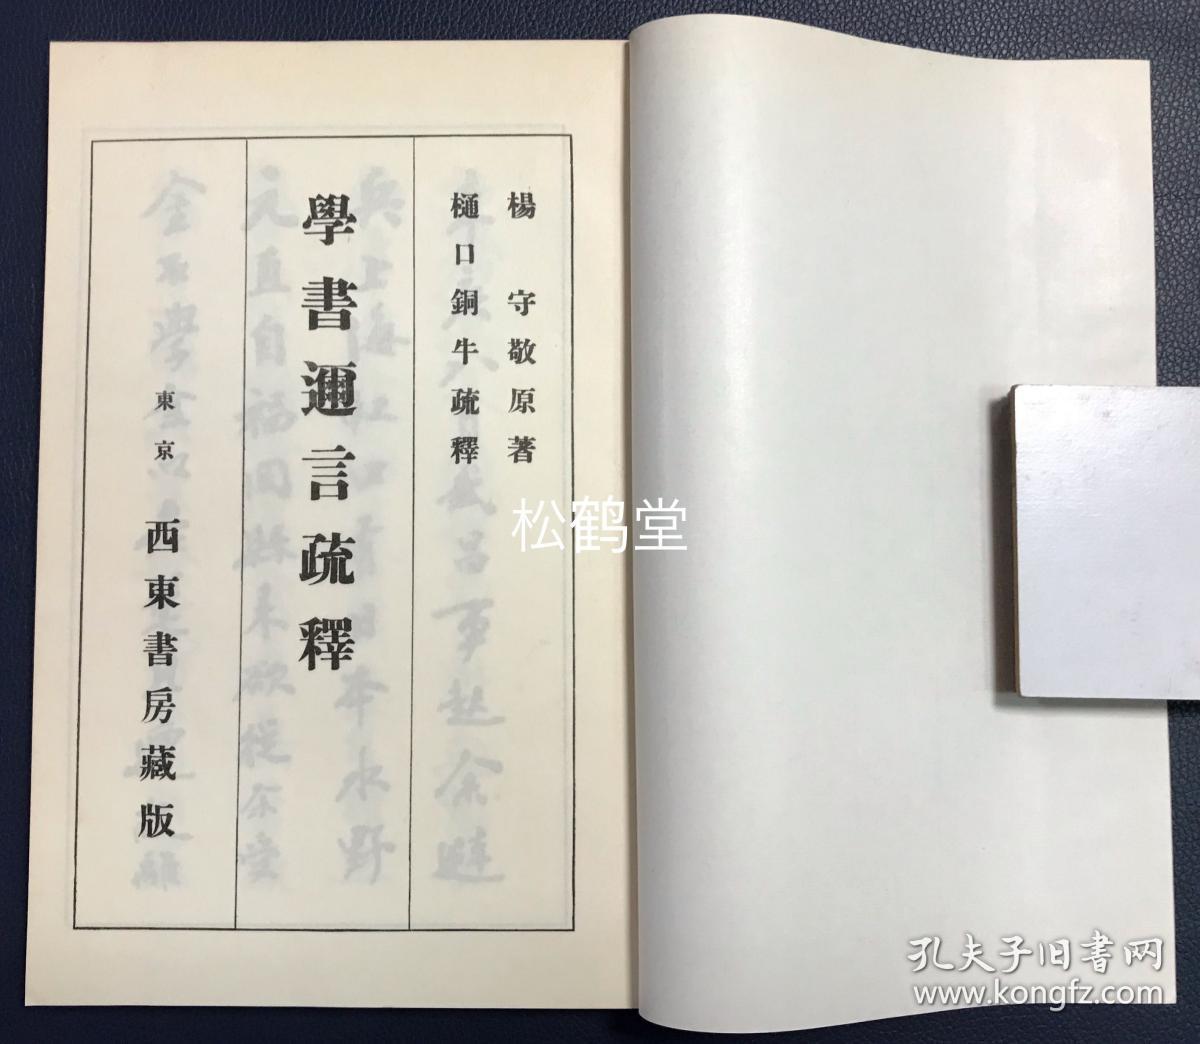 楊守敬原著
樋口銅牛疏釋
學書邇言疏釋
東京 西東書房藏版
松鹤堂
孔夫子旧书网
www.kongfz.com